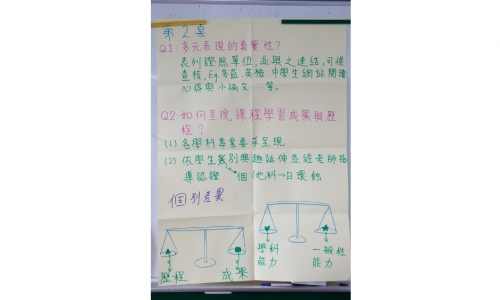 第2桌
Q1:多元表現的真實性?
表列證照單位,並與之連結,可供
查核. Eg.多益.英檢.中學生網站閱讀
心得與小論文 等。
Q2:如何呈現課程學習成果與歷
程?
(1) 各學科專業要求呈現
(2) 依學生個別興趣延伸並經老師指
導認證 個(地科→日環蝕
個別差異
學科 一般性
能力 能力
歷程 成果